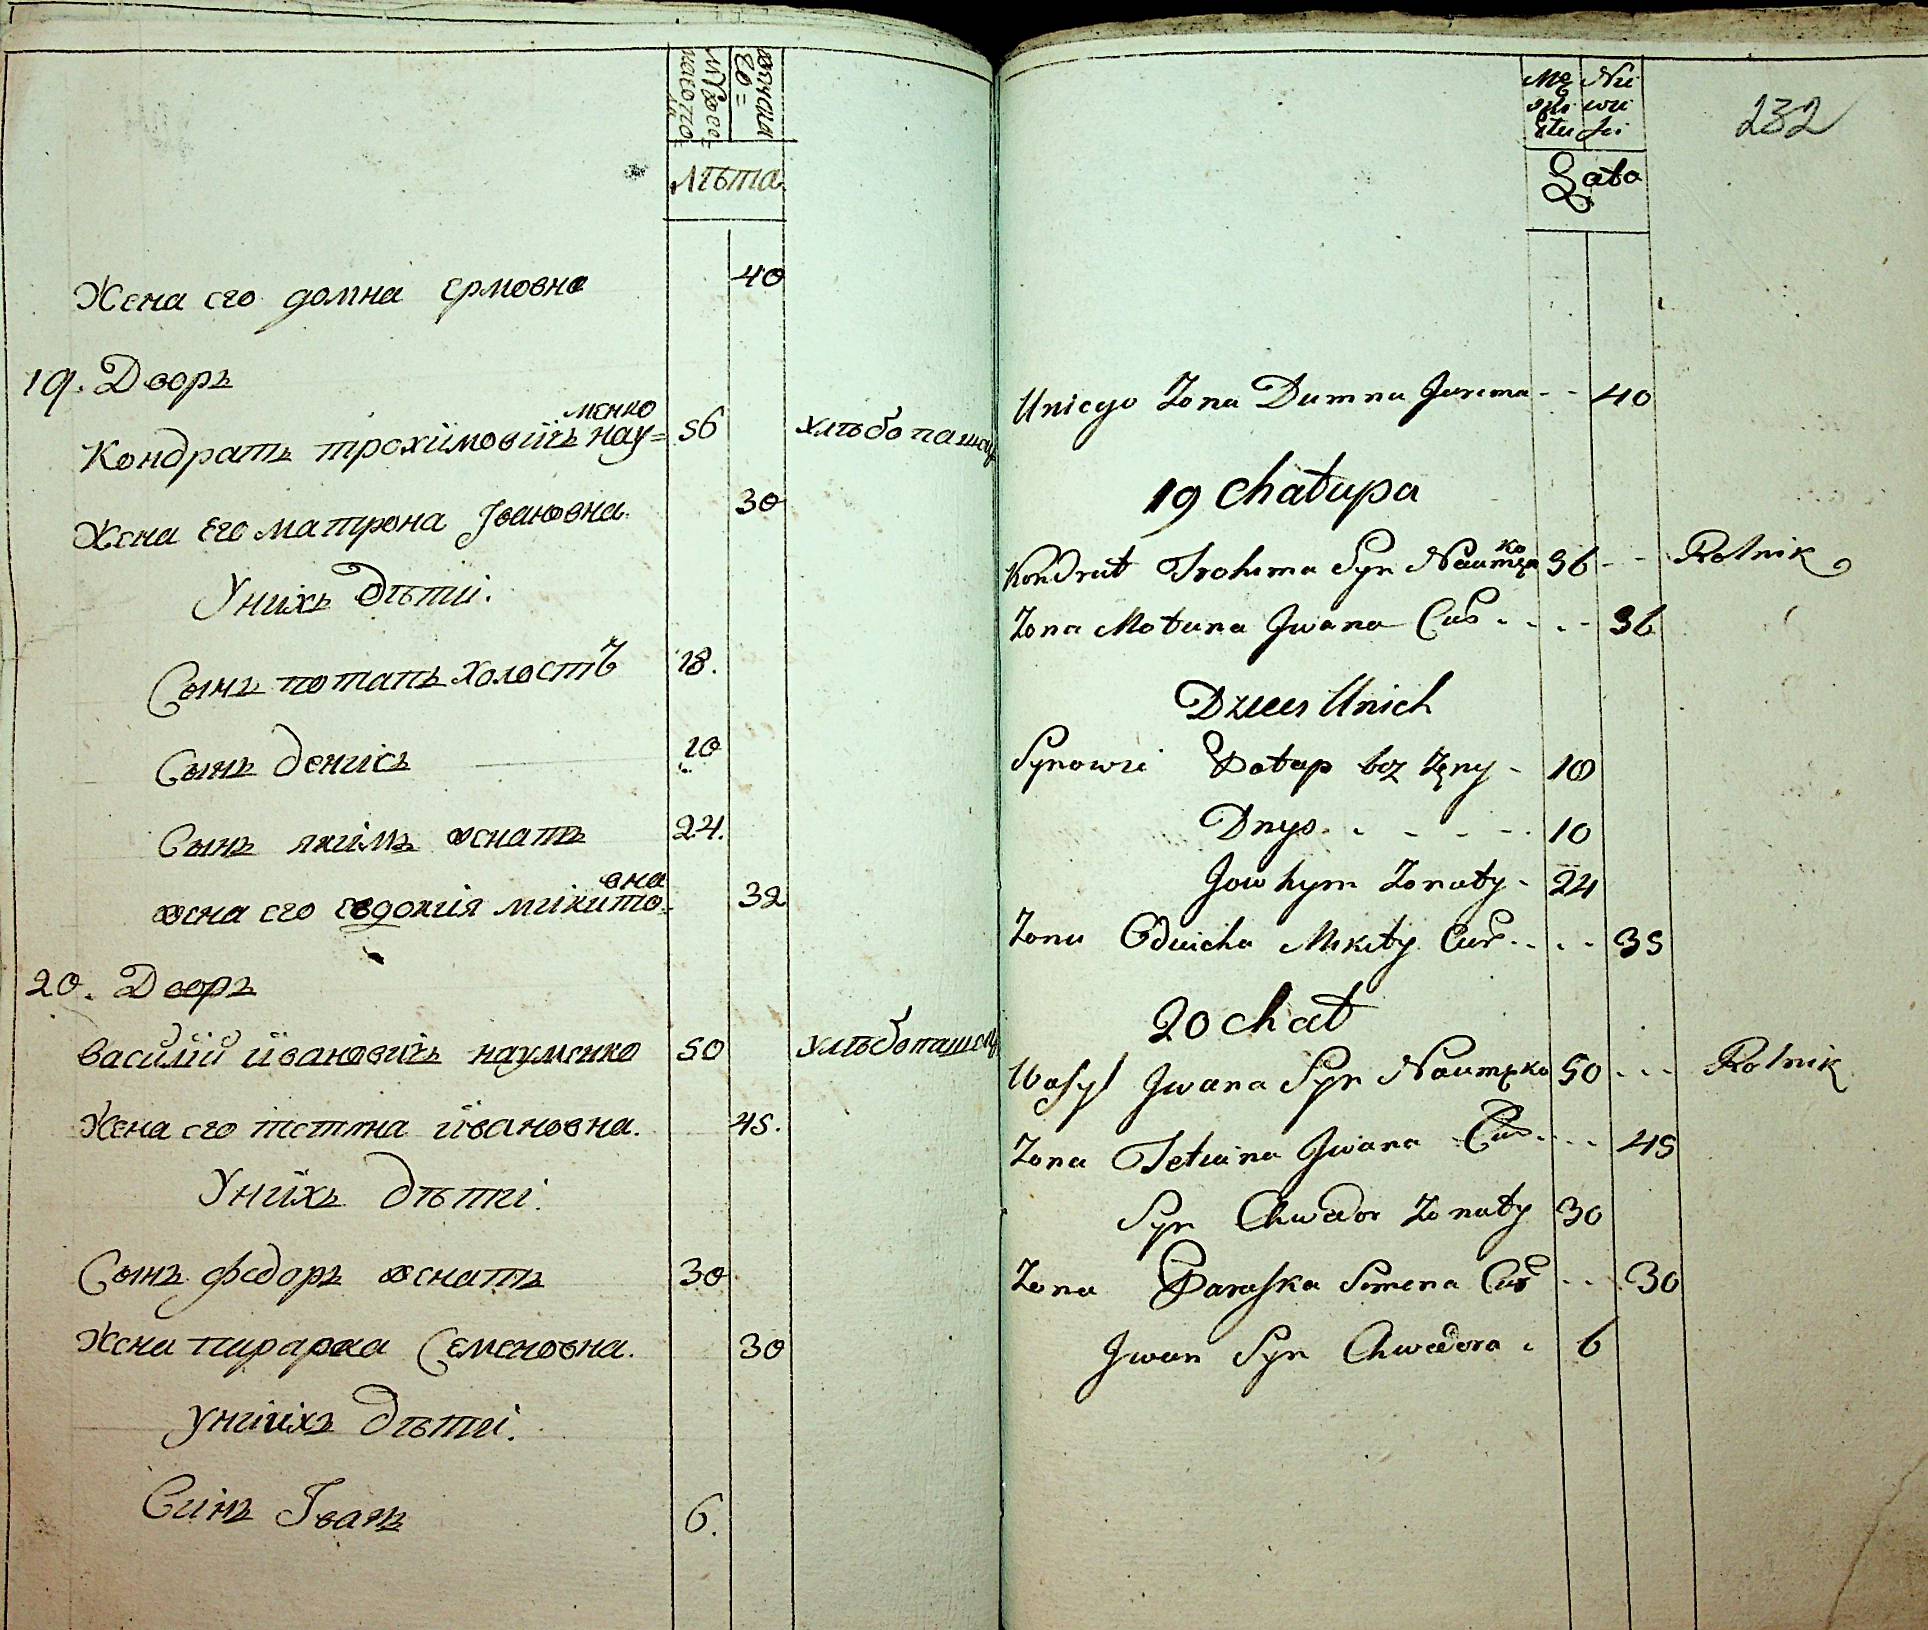 мужеска
го
женска
го
лѣта
Жена его домна ермовна 40
19. Дворъ
Кондратъ трохимовичъ науменко 56 хлѣбопашецъ
Жена его матрона Iвановна 30
Унихъ дѣти.
Сынъ потапъ холостъ 18.
Сынъ денисъ 10
Сынъ якимъ женатъ 24.
жена его евдокия микитовна 32
20. Дворъ
василий ивановичъ науменко 50 хлѣбопашецъ
Жена его тетяна ивановна. 45.
Унихъ дѣти.
Сынъ федоръ женатъ 30
Жена параска Семеновна. 30
унихъ дѣти.
Синъ Iванъ 6.
232
Lata
Uniego Zona Dumna Jarema - - 40
19 Chałupa
Kondrat Trohima Syn Naumęko 56 - - Rolnik
Zona Motruna Jwana Cur - - - 36
Dzieci Unich
Synowie Potap bez Zęny - 18
Dnys - - - - 10
Jowhym Zonaty - 24
Zona Odwicha Mikity Cur - - - - 35
20 chał
Wasyl Jwana Syn Naumęko 50 - - - Rolnik
Zona Tetiana Jwana Cur - - - 45
Syn Chwedor Zonaty 30
Zona Paraska Semena Cur - - 30
Jwan Syn Chwedora - 6